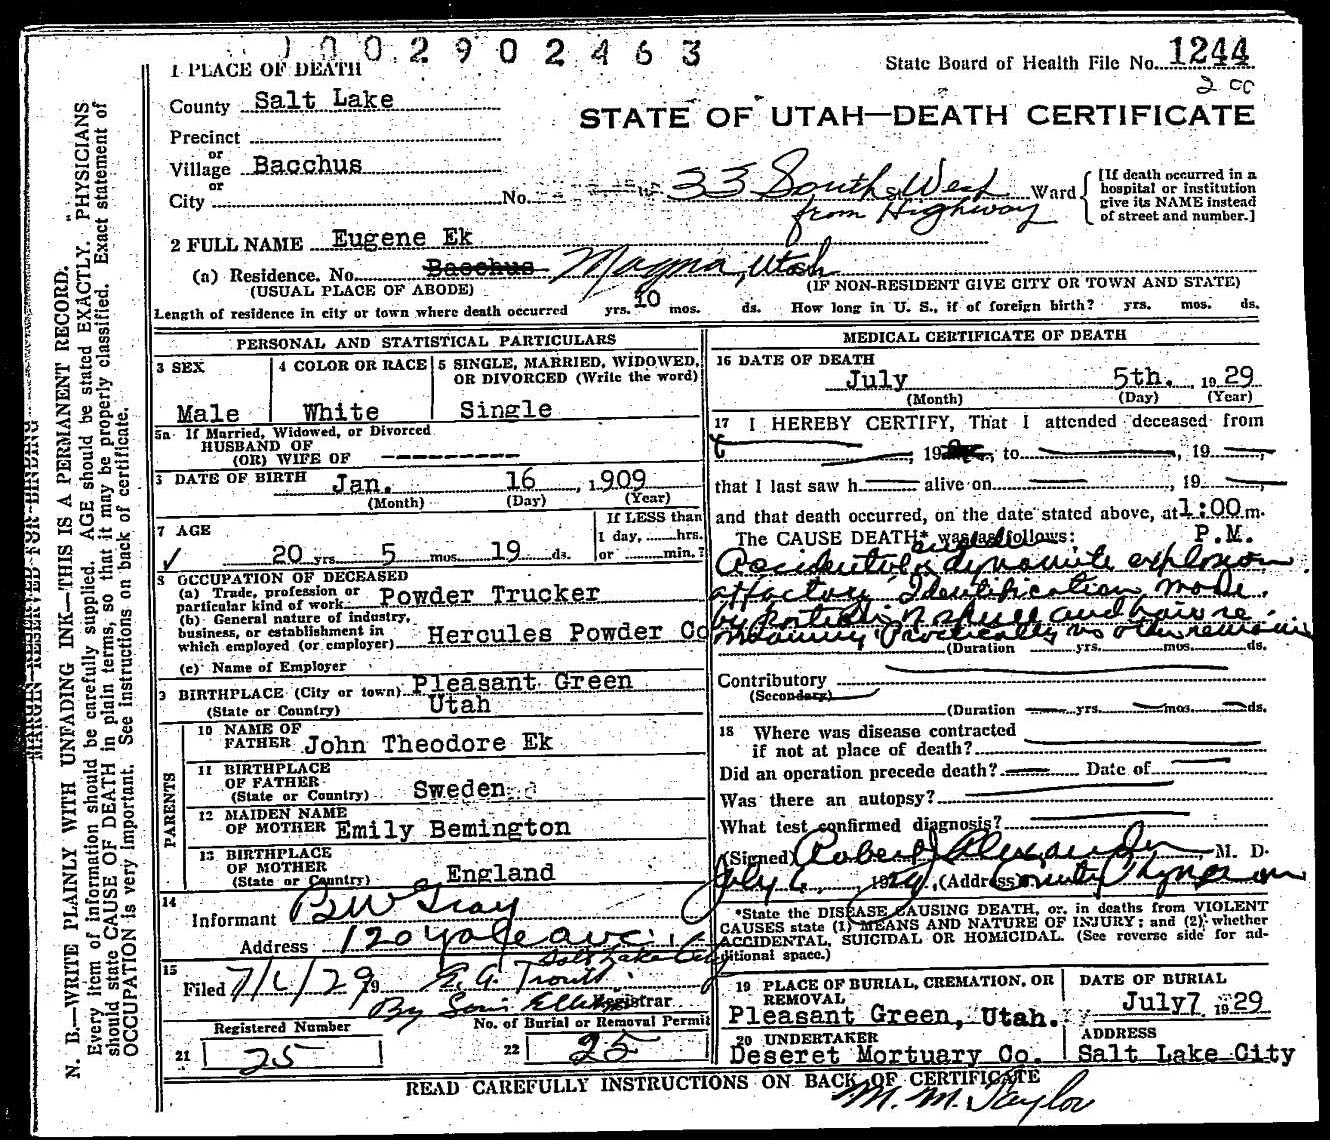 1002902463
1 PLACE OF DEATH
State Board of Health File No. 1244
2 cc
County Salt Lake
STATE OF UTAH—DEATH CERTIFICATE
Precinct
or
Village Bacchus
or
City No. 33 South & West Ward
from Highway
[If death occurred in a
hospital or institution
give its NAME instead
of street and number.]
2 FULL NAME Eugene Ek
(a) Residence. No. Bacchus Magna, Utah
(USUAL PLACE OF ABODE) (IF NON-RESIDENT GIVE CITY OR TOWN AND STATE)
Length of residence in city or town where death occurred yrs. 10 mos. ds. How long in U. S., if of foreign birth? yrs. mos. ds.
PERSONAL AND STATISTICAL PARTICULARS
3 SEX
Male
4 COLOR OR RACE
White
5 SINGLE, MARRIED, WIDOWED,
OR DIVORCED (Write the word)
Single
5a If Married, Widowed, or Divorced
HUSBAND OF
(OR) WIFE OF
DATE OF BIRTH Jan. 16, 1909
(Month) (Day) (Year)
7 AGE
20 yrs. 5 mos. 19 ds.
If LESS than
1 day, hrs.
or min.?
8 OCCUPATION OF DECEASED
(a) Trade, profession or
particular kind of work Powder Trucker
(b) General nature of industry,
business, or establishment in
which employed (or employer) Hercules Powder Co
(c) Name of Employer
9 BIRTHPLACE (City or town) Pleasant Green
(State or Country) Utah
PARENTS
10 NAME OF
FATHER John Theodore Ek
11 BIRTHPLACE
OF FATHER
(State or Country) Sweden
12 MAIDEN NAME
OF MOTHER Emily Bemington
13 BIRTHPLACE
OF MOTHER
(State or Country) England
14
Informant
Address 120 Yale ave.
Salt Lake City
15
Filed 19
Registrar
Registered Number
21 25
No. of Burial or Removal Permit
22 25
MEDICAL CERTIFICATE OF DEATH
16 DATE OF DEATH
July 5th., 1929
(Month) (Day) (Year)
17 I HEREBY CERTIFY, That I attended deceased from
, 19 , to , 19
that I last saw h alive on , 19
and that death occurred, on the date stated above, at 1:00 m.
The CAUSE DEATH* was as follows: P.M.
Accidental dynamite explosion
at factory Identification made
by portion skull and hair re-
maining Practically no other remains
(Duration yrs. mos. ds.
Contributory
(Secondary)
(Duration yrs. mos. ds.
18 Where was disease contracted
if not at place of death?
Did an operation precede death? Date of
Was there an autopsy?
What test confirmed diagnosis?
(Signed) Robert J Alexander, M. D.
July 6 1929, (Address) County Physician
*State the DISEASE CAUSING DEATH, or, in deaths from VIOLENT
CAUSES state (1) MEANS AND NATURE OF INJURY; and (2) whether
ACCIDENTAL, SUICIDAL OR HOMICIDAL. (See reverse side for ad-
ditional space.)
19 PLACE OF BURIAL, CREMATION, OR
REMOVAL
Pleasant Green, Utah.
DATE OF BURIAL
July 7 1929
20 UNDERTAKER
Deseret Mortuary Co.
ADDRESS
Salt Lake City
READ CAREFULLY INSTRUCTIONS ON BACK OF CERTIFICATE
M. M. Taylor
MARGIN RESERVED FOR BINDING
N. B.—WRITE PLAINLY WITH UNFADING INK—THIS IS A PERMANENT RECORD.
Every item of information should be carefully supplied. AGE should be stated EXACTLY. PHYSICIANS
should state CAUSE OF DEATH in plain terms, so that it may be properly classified. Exact statement of
OCCUPATION is very important. See instructions on back of certificate.